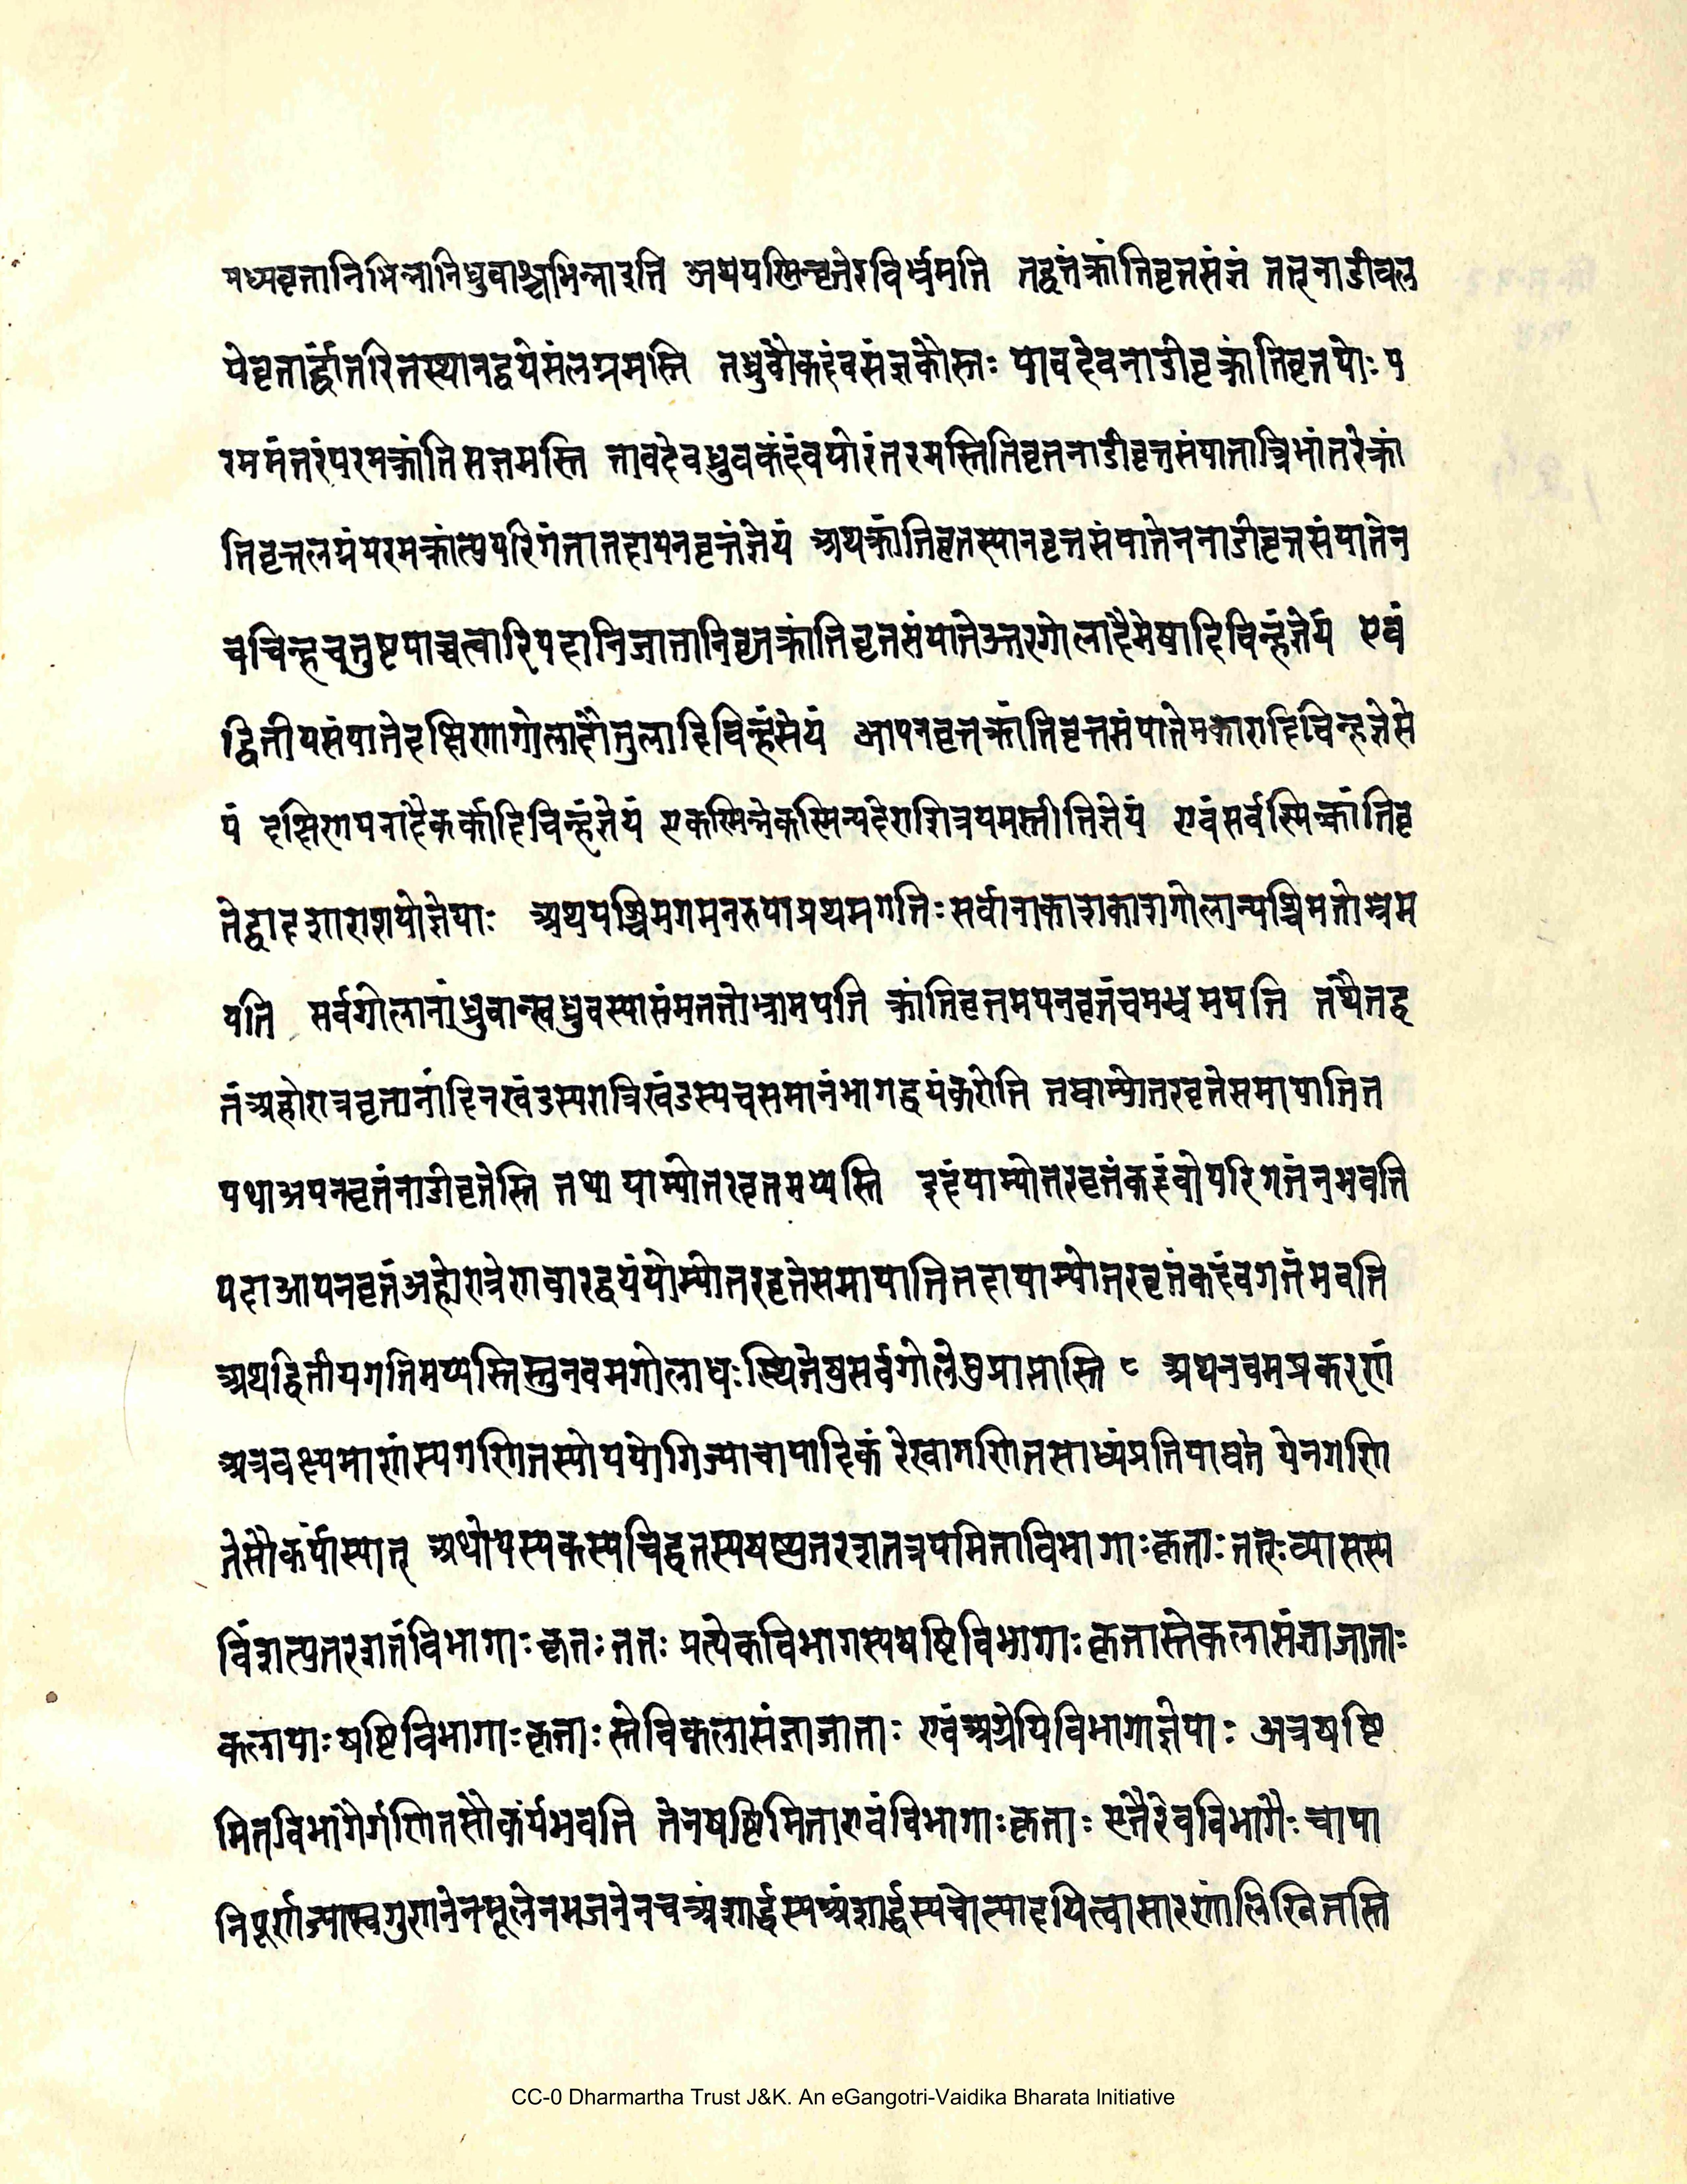 मध्यवृत्तानिभिन्नानिध्रुवाश्चभिन्नाइति अथयस्मिन्वृत्तेरविर्भ्रमति तद्वृत्तंक्रांतिवृत्तसंज्ञं तत्तुनाडीवल
येवृत्तार्द्धांतरितस्थानद्वयेसंलग्नमस्ति तध्रुवौकदंबसंज्ञकौस्तः यावदेवनाडीवृक्रांतिवृत्तयोः प
रममंतरंपरमक्रांतिसज्ञमस्ति तावदेवध्रुवकदंबयोरंतरमस्तितिवृत्तनाडीवृत्तसंपातात्रिभांतरेक्रां
तिवृत्तलग्नंपरमक्रांत्युपरिगंतातदायनवृत्तंज्ञेयं अथक्रांतिवृत्तस्यानवृत्तसंपातेननाडीवृत्तसंपातेन
चचिन्हचतुष्टयाच्चत्वारिपदानिजातानिवृतक्रांतिवृत्तसंपातेउत्तरगोलादैमेषादिचिन्हंज्ञेयं एवं
द्वितीयसंपातेदक्षिणगोलादौतुलादिचिन्हंसेयं आपनवृत्तक्रांतिवृत्तसंपातेमकारादिचिन्हज्ञेसे
यं दक्षिणायनादैकर्कादिचिन्हंज्ञेयं एकस्मिन्नेकस्मिन्पदेराशित्रयमस्तीतिज्ञेयं एवंसर्वस्मिन्क्रांतिवृ
तेद्वादशाराशयोज्ञेयाः अथपश्चिमगमनरुपाप्रथमगतिः सर्वानाकाशकाशगोलान्पश्चिमतोभ्रम
यति सर्वगोलानांध्रुवान्स्वध्रुवस्यासंमततोभ्रामयति क्रांतिवृत्तमयनवृत्तंचमभ्रमयति तथैतद्वृ
तंअहोरात्रवृत्तानांदिनखंडस्यरात्रिखंडस्यचसमानंभागद्वयंकरोति तद्याम्योतरवृत्तेसमायातित
यथाअयनवृत्तंनाडीवृत्तेस्ति तथा याम्योत्तरवृतमप्यस्ति इदंयाम्योत्तरवृत्तंकदंबोपरिगतंनभवति
यदाआयनवृत्तंअहोरात्रेणवारद्वयंयोम्योतरवृत्तेसमायातितदायाम्योत्तरवृत्तंकदंबगतंभवति
अथद्वितीयगतिमप्यस्तिस्तुनवमगोलाधःस्थितेषुसर्वगोलेषुप्राप्तास्ति ८ अथनवमप्रकरणं
अत्रवक्ष्यमाणंस्यगणितस्योपयोगिज्याचापादिकं रेखागणितसाध्यंप्रतिपाद्यते येनगणि
तेसौकर्यांस्यात् अथोयस्यकस्यचिद्वृतस्यषष्ट्युतरशतत्रयमिताविभागाः कृताः ततःव्यासस्य
विंशत्युतरशतंविभागाः कृतः ततः प्रत्येकविभागस्यषष्टिविभागाः कृतास्तेकलासंज्ञाजाताः
कलायाः षष्टिविभागाः कृताः स्तेविकलासंज्ञाजाताः एवंअग्रेपिविभागाज्ञेयाः अत्रषष्टि
मितविभागैर्गणितसौकर्यंभवति तेनषष्टिमिताएवंविभागाः कृताः एतैरेवविभागैः चापा
निपूर्णज्याष्वगुणनेनमूलेनभजनेनचअंशार्द्धस्यअंशार्द्धस्यचोत्पादयित्वासारणांलिखितस्ति
CC-0 Dharmartha Trust J&K. An eGangotri-Vaidika Bharata Initiative